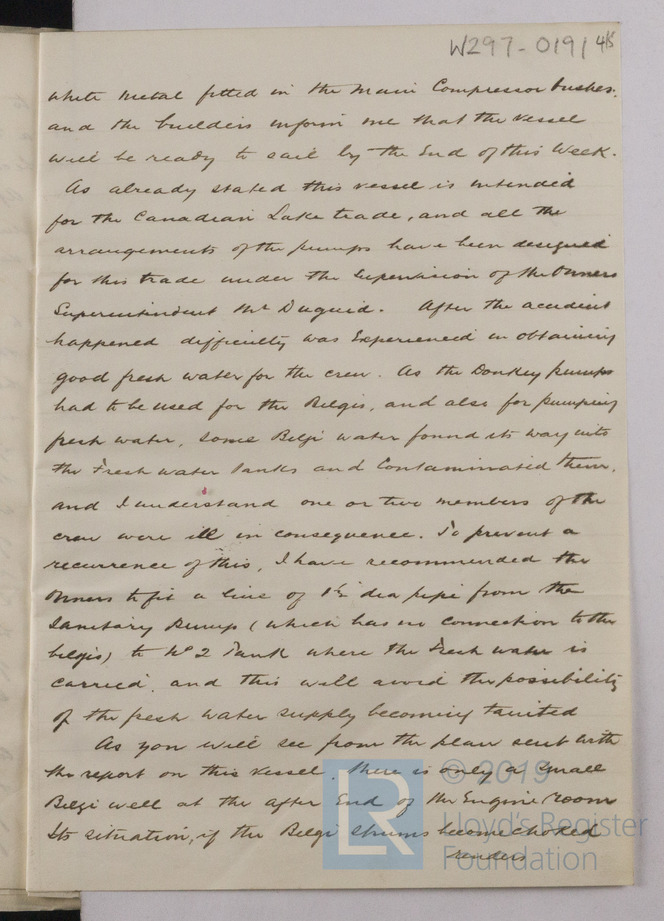 W297-0191 4/5
white metal fitted in the Main Compressor bushes.
and the builders inform me that the vessel
will be ready to sail by the End of this Week.
As already stated this vessel is intended
for the Canadian Lake trade, and all the
arrangements of the pumps have been designed
for this trade under the Supervision of the Owners
Superintendent Mr Duguid. After the accident
happened difficulty was Experienced in obtaining
good fresh water for the crew. As the Donkey pumps
had to be used for the Belgis, and also for pumping
fresh water, some Belgi water found its way into
the Fresh water Tanks and Contaminated them,
and I understand one or two members of the
crew were ill in consequence. To prevent a
recurrence of this, I have recommended the
Owners to fit a line of 1½ dia pipe from the
Sanitary Pump (which has no connection to the
belgis) to No 2 Tank where the Fresh water is
carried, and this will avoid the possibility
of the fresh water supply becoming tainted
As you will see from the plan sent with
the report on this vessel, there is only a small
Belgi well at the after End of the Engine room
Its situation, if the Belgi strums become choked
renders
LR
© 2019
Lloyd's Register
Foundation